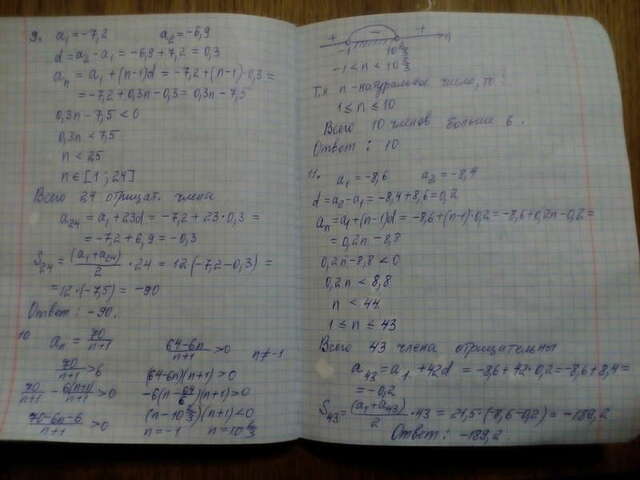 9. a₁ = -7,2 a₂ = -6,9
d = a₂ - a₁ = -6,9 + 7,2 = 0,3
aₙ = a₁ + (n-1)d = -7,2 + (n-1)·0,3 =
= -7,2 + 0,3n - 0,3 = 0,3n - 7,5
0,3n - 7,5 < 0
0,3n < 7,5
n < 25
n ∈ [1; 24]
Всего 24 отрицат. члена
a₂₄ = a₁ + 23d = -7,2 + 23·0,3 =
= -7,2 + 6,9 = -0,3
S₂₄ = (a₁+a₂₄)/2 · 24 = 12(-7,2-0,3) =
= 12·(-7,5) = -90
Ответ: -90.
10 aₙ = 70/(n+1)
70/(n+1) > 6
70/(n+1) - 6(n+1)/(n+1) > 0
(70-6n-6)/(n+1) > 0
(64-6n)/(n+1) > 0 n ≠ -1
(64-6n)(n+1) > 0
-6(n - 64/6)(n+1) > 0
(n - 10 2/3)(n+1) < 0
n = -1 n = 10 2/3
+ - + n
-1 10 2/3
-1 < n < 10 2/3
Т.к n - натуральное число, то:
1 ≤ n ≤ 10
Всего 10 членов больше 6.
Ответ: 10
11. a₁ = -8,6 a₂ = -8,4
d = a₂ - a₁ = -8,4 + 8,6 = 0,2
aₙ = a₁ + (n-1)d = -8,6 + (n-1)·0,2 = -8,6 + 0,2n - 0,2 =
= 0,2n - 8,8
0,2n - 8,8 < 0
0,2n < 8,8
n < 44
1 ≤ n ≤ 43
Всего 43 члена отрицательны
a₄₃ = a₁ + 42d = -8,6 + 42·0,2 = -8,6 + 8,4 =
= -0,2
S₄₃ = (a₁+a₄₃)/2 · 43 = 21,5·(-8,6-0,2) = -189,2
Ответ: -189,2